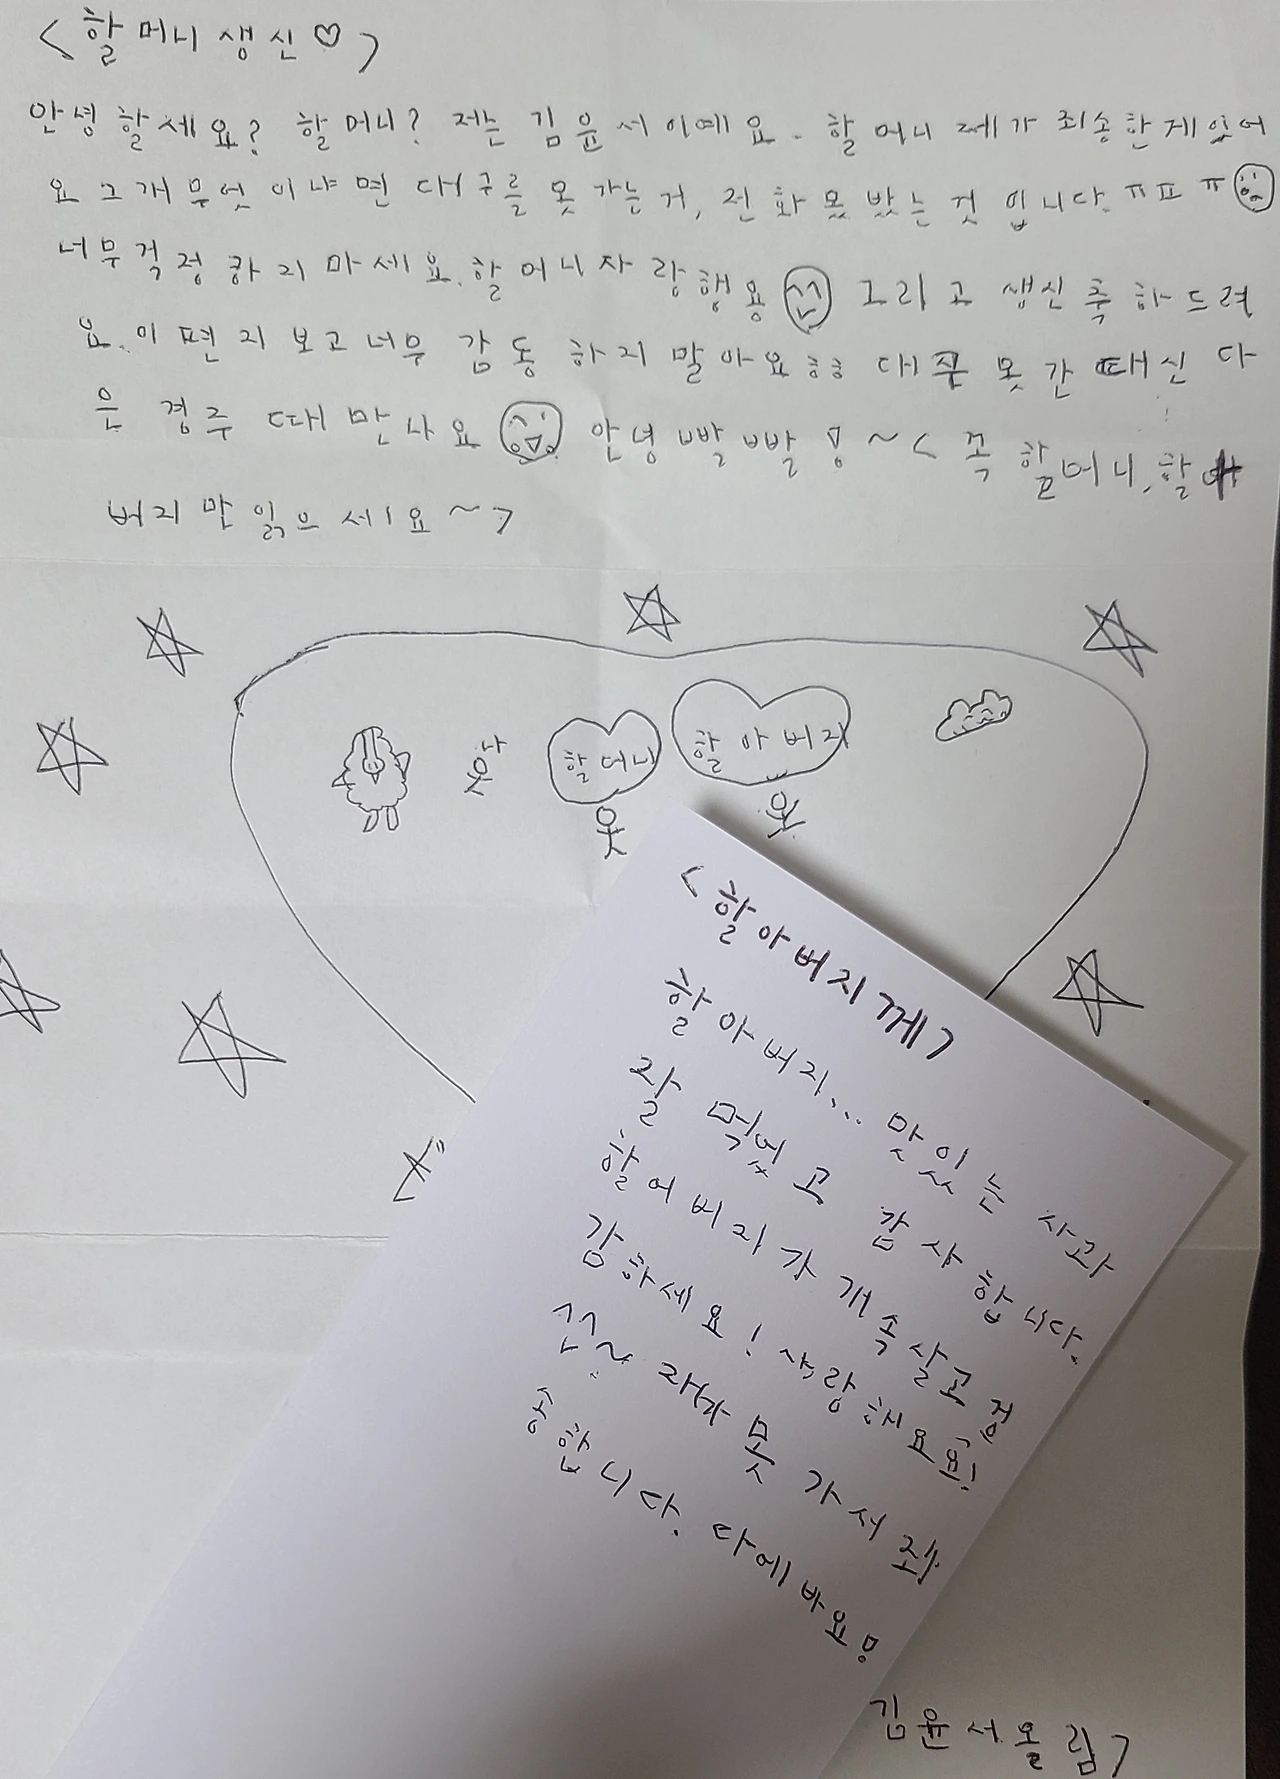 <할머니생신♡>
안녕할세요? 할머니? 저는 김윤서이예요. 할머니 제가 죄송한게있어
요 그개 무엇이냐면 대구를 못 가는거, 전화 못 봤는 것 입니다. ㅠㅠㅠ
너무 걱정하지마세요. 할머니 자랑행용 그리고 생신 축하드려
요. 이 편지 보고 너무 감동하지 말아요 흐흐 대구 못 간 때신 다
은 경주 때 만나요 안녕 빠발 빠발!~< 꼭 할머니, 할아
버지만 읽으세요~>
나
할머니
할아버지
<할아버지께>
할아버지... 맛있는 사과
잘 먹었고 감사합니다.
할어버지가 개속 살고 건
감하세요! 사랑해요요!
^^~ 재가 못 가서 죄
송합니다. 다에바요!
김윤서올림>